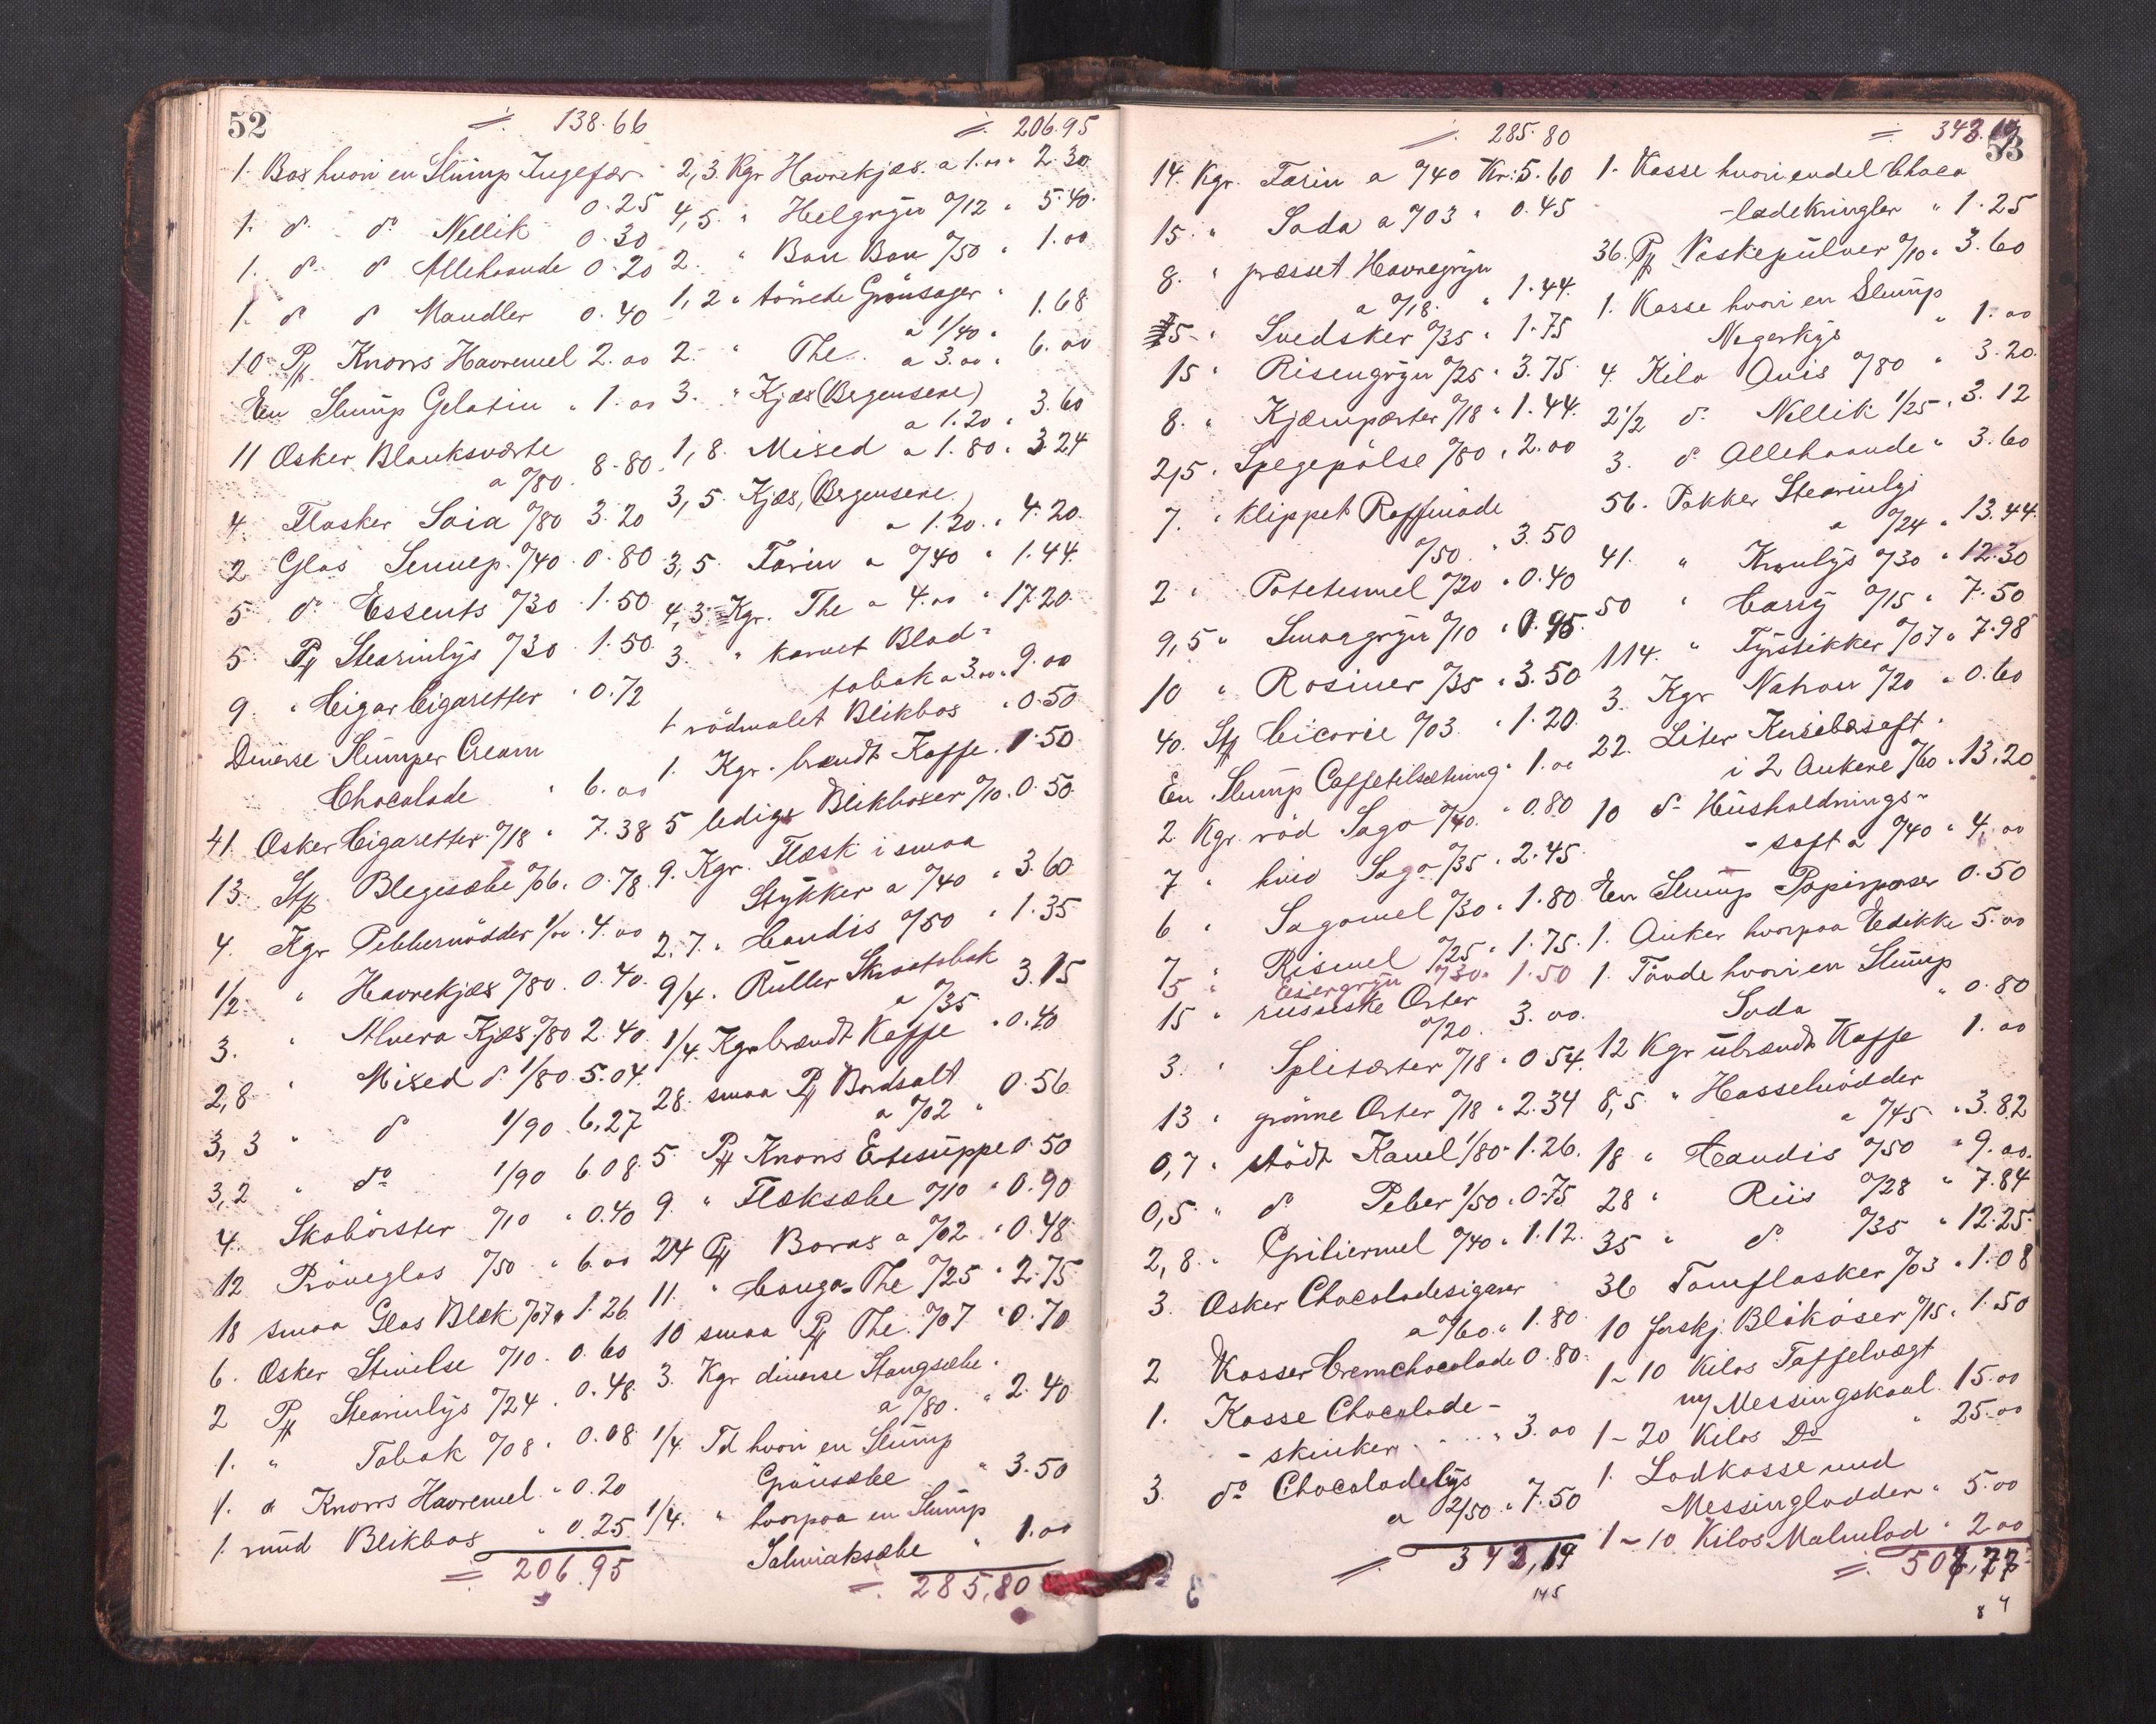 52
= 138.66
1. Bos hvori en Slump Ingefær
0.25
1. do do Nellik 0.30
1. do do Allehaande 0.20
1. do do Mandler 0.40
10 Pk Knorrs Havremel 2.00
En Slump Gelatin " 1.00
11 Æsker Blanksværte
a 0/80. 8.80
4. Flasker Soia 0/80 3.20
2 Glas Sennep 0/40 0.80
5 do Essents 0/30 1.50
5 Pk Stearinlys 0/30 1.50
9. " Cigar Cigaretter " 0.72
Diverse Slumper Cream
Chocolade " 6.00
41 Æsker Cigaretter 0/18 " 7.38
13 Stk Blegesæbe 0/06 " 0.78
4. Kgr Pebbernödder 1/00 . 4.00
1/2 " Havrekjæs 0/80 . 0.40
3. " Alvera Kjæs 0/80 2.40
2,8 " Mixed do 1/80 5.04
3,3 " do 1/90 6,27
3,2 " do 1/90 6.08
4. Skobörster 0/10 " 0.40
12 Pröveglas 0/50 " 6.00
18 smaa Glas Blæk 0/07 " 1.26
6. Æsker Stivelse 0/10 . 0.60
2 Pk Stearinlys 0/24 . 0.48
1. " Tobak 0/08 . 0.08
1. do Knorrs Havremel " 0.20
1. rund Blikbos " 0.25
= 206.95
= 206.95
2,3 Kgr Havrekjæs a 1.00 " 2.30
4,5. " Helgryn 0/12 " 5.40
2. " Bon Bon 0/50 " 1.00
1,2 " törrede Grönsager "
a 1/40 " 1.68
2. " The a 3.00 " 6.00
3. " Kjæs (Bergensere)
a 1.20 " 3.60
1,8. Mixed a 1.80 " 3.24
3,5. Kjæs, (Bergensere)
a 1.20 " 4.20
3,5. Farin a 0/40 " 1.44
4,3 Kgr. The a 4.00 " 17.20
3. " karvet Blad-
tobak a 3.00 " 9.00
1 rödmalet Blikbos " 0.50
1. Kgr. brændt Kaffe . 1.50
5 ledige Blikboser 0/10 . 0.50
9. Kgr. Flæsk i smaa
Stykker a 0/40 " 3.60
2.7. " Candis 0/50 " 1.35
9/4. Ruller Skraatobak
a 0/35 3.15
1/4. Kgr brændt Kaffe " 0.40
28. smaa Pk Bordsalt
a 0/02 " 0.56
5 Pk Knorrs Ertesuppe 0.50
9 " Flæksæbe 0/10 " 0.90
24 Pk Borax a 0/02 " 0.48
11. " Congo-The 0/25 " 2.75
10 smaa Pk The 0/07 " 0.70
3. Kgr diverse Stangsæbe
a 0/80. " 2.40
1/4. Td hvori en Slump
Grönsæbe " 3.50
1/4. " hvorpaa en Slump
Salmiaksæbe " 1.00
= 285,80
53
= 285.80
14. Kgr. Farin a 0/40 Kr. 5.60
15. " Soda a 0/03 " 0.45
8. " presset Havregryn
a 0/18. " 1.44
5. " Svedsker 0/35 " 1.75
15 " Risengryn 0/25 " 3.75
8. " Kjæmpærter 0/18 " 1.44
2,5 " Spegepölse 0/80 " 2.00
7. " Klippet Raffinade
0/50 " 3.50
2 " Potetemel 0/20 " 0.40
9,5 " Smaagryn 0/10 " 0.95
10 " Rosiner 0/35 " 3.50
40. Stk Cicorie 0/03 " 1.20
En Slump Caffetilsætning " 1.00
2 Kgr. röd Sago 0/40 " 0.80
7 " hvid Sago 0/35 . 2.45
6 " Sagomel 0/30 " 1.80
7 " Rismel 0/25 " 1.75
5 " 0/30 " 1.50
15 " russiske Erter
0/20. 3.00
3. " Splitærter 0/18 " 0.54
13 " grönne Erter 0/18 " 2.34
0,7 " stödt Kanel 1/80 " 1.26
0,5 " do Peber 1/50 . 0.75
2,8 " Griliermel 0/40 " 1.12
3. Æsker Chocoladesigarer
a 0/60 " 1.80
2 Kasser Cremchocolade 0.80
1. Kasse Chocolade-
-skinker " 3.00
3. do Chocoladelys
a 2/50 " 7.50
= 342,19
145
= 343.19
1. Kasse hvori endel Choco
-ladekringler " 1.25
36. Pk Vaskepulver 0/10 " 3.60
1. Kasse hvori en Slump
Negerkys " 1.00
4. Kilo Anis 0/80 " 3.20
2 1/2 do Nellik 1/25 " 3.12
3. do Allehaande " 3.60
56. Pakker Stearinlys
a 0/24 " 13.44
41. " Kronlys 0/30 " 12.30
50 " Carry 0/15 " 7.50
114. " Fyrstikker 0/07 " 7.98
3. Kgr Natron 0/20 " 0.60
22. Liter Kirsebærsaft
i 2 Ankere 0/60 . 13.20
10 do Husholdnings-
-saft a 0/40 " 4.00
En Slump Papirposer 0.50
1. Anker hvorpaa Edikke 5.00
1. Tönde hvori en Slump
Soda " 0.80
12 Kgr ubrændt Kaffe 1.00
8,5. " Hasselnödder
a 0/45 " 3.82
18 " Candis 0/50 " 9.00
28 " Riis 0/28 " 7.84
35 " do 0/35 " 12.25
36 Tomflasker 0/03 " 1.08
10 forskj. Blikkaser 0/15 " 1.50
1-10 Kilos Taffelvægt
ny Messingskaal 15.00
1-20 Kilos Do " 25.00
1. Lodkasse med
Messinglodder " 5.00
1-10 Kilos Malmlod " 2.00
= 507,77
8 4